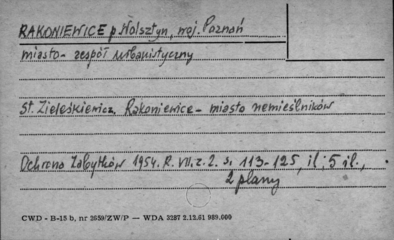 RAKONIEWICE p Wolsztyn, woj. Poznań
miasto - zespół urbanistyczny
St. Zieleśkiewicz, Rakoniewice - miasto rzemieślników
Ochrona Zabytków 1954. R. VII. z. 2. s. 113-125, il: 5 il.,
2 plany
CWD - B-15 b, nr 2659/ZW/P — WDA 3287 2.12.61 989.000